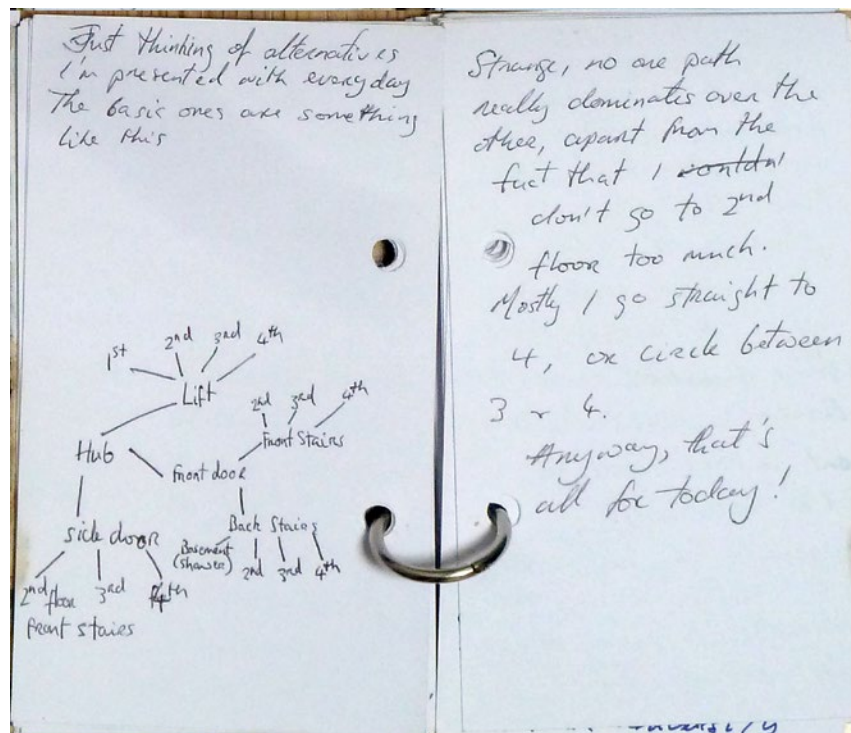 Just thinking of alternatives
I'm presented with everyday
The basic ones are something
like this
1st 2nd 3rd 4th
Lift
2nd 3rd 4th
Front Stairs
Hub
Front door
side door
Back Stairs
Basement
(shower)
2nd 3rd 4th
2nd floor 3rd 4th
front stairs
Strange, no one path
really dominates over the
other, apart from the
fact that I wouldn'
don't go to 2nd
floor too much.
Mostly I go straight to
4, or circle between
3 & 4.
Anyway, that's
all for today!